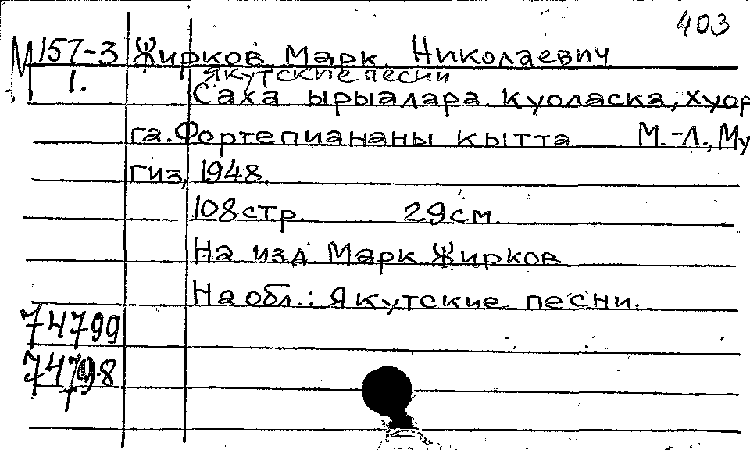 403
М157-3 Жирков Марк Николаевич
1. Якутские песни
Саха ырыалара. Куоласка, хуор
га. Фортепиананы кытта М.-Л., Му
гиз, 1948.
108стр 29см.
На изд Марк Жирков
На обл.: Якутские песни.
74799
74798